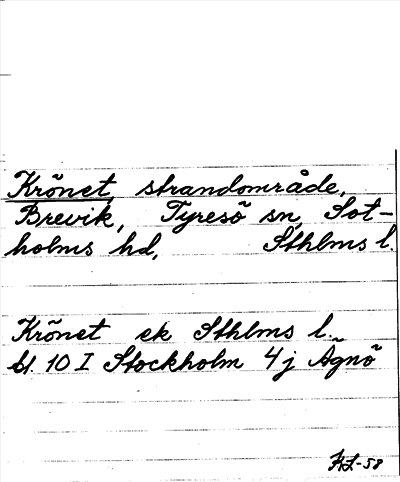 Krönet, strandområde,
Brevik, Tyresö sn, Sot-
holms hd, Sthlms l.
Krönet ek Sthlms l.
bl. 10 I Stockholm 4j Ägnö
HL-58